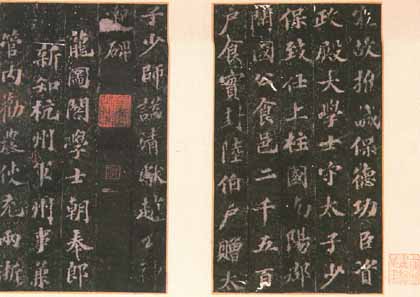 宋故推誠保德功臣資
政殿大學士守太子少
保致仕上柱國南陽郡
開國公食邑二千五百
戶食實封陸伯戶贈太
子少師諡清獻趙公
碑
龍圖閣學士朝奉郎
新知杭州軍州事兼
管內勸農使充兩浙